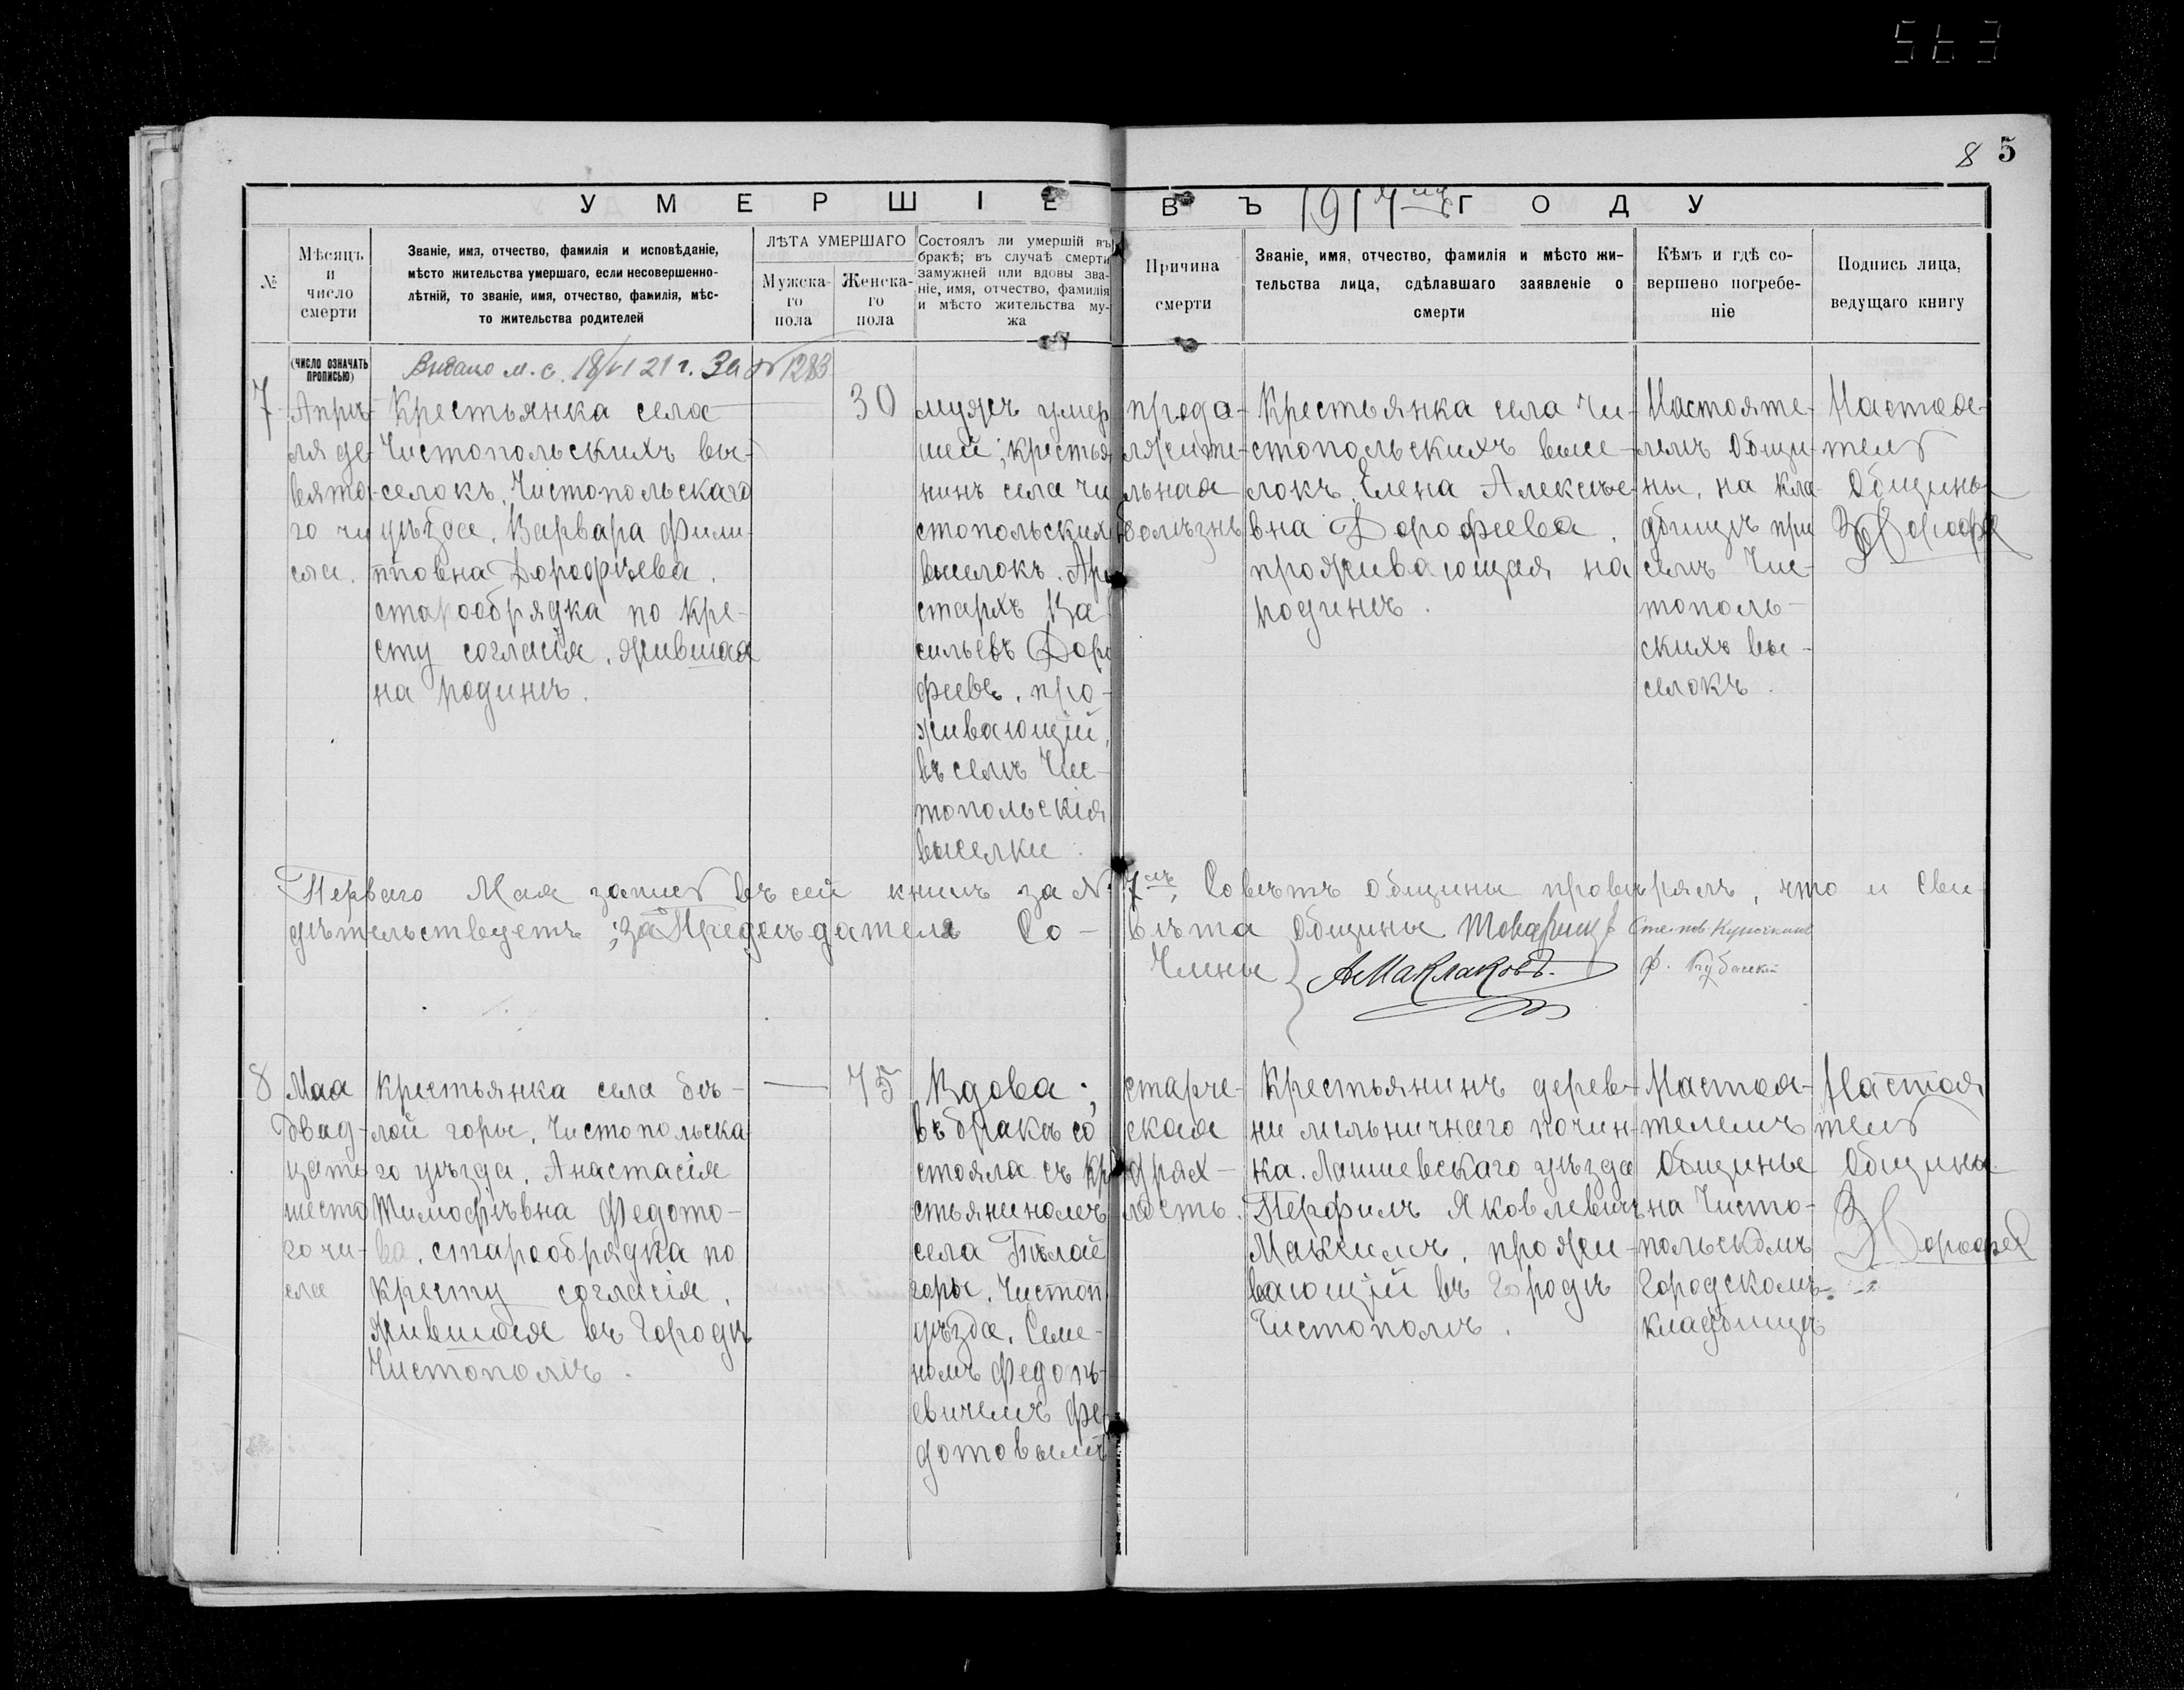 563
8 5
УМЕРШІЕ ВЪ 1917мъ ГОДУ
№
Мѣсяцъ
и
число
смерти
Званіе, имя, отчество, фамилія и исповѣданіе,
мѣсто жительства умершаго, если несовершенно-
лѣтній, то званіе, имя, отчество, фамилія, мѣс-
то жительства родителей
ЛѢТА УМЕРШАГО
Мужска-
го
пола
Женска-
го
пола
Состоялъ ли умершій въ
бракѣ; въ случаѣ смерти
замужней или вдовы зва-
ніе, имя, отчество, фамилія
и мѣсто жительства му-
жа
Причина
смерти
Званіе, имя, отчество, фамилія и мѣсто жи-
тельства лица, сдѣлавшаго заявленіе о
смерти
Кѣмъ и гдѣ со-
вершено погребе-
ніе
Подпись лица,
ведущаго книгу
(ЧИСЛО ОЗНАЧАТЬ
ПРОПИСЬЮ)
Выдано м. с. 18/VI 21 г. За № 1283
7
Апрѣ-
ля де-
вято-
го чи
сла.
Крестьянка села
Чистопольскихъ вы-
селокъ, Чистопольскаго
уѣзда, Варвара Фили-
пповна Дорофѣева,
старообрядка по кре-
сту согласія, жившая
на родинѣ.
30
мужъ умер
шей; крестья
нинъ села Чи
стопольских
выселокъ. Ари
стархъ Ва
сильевъ Доро
феевъ, про-
живающій,
въ селѣ Чис-
топольскія
выселки.
прода-
лжите-
льная
болѣзнь
Крестьянка села Чи-
стопольскихъ высе-
локъ, Елена Алексѣе-
вна Дорофеева,
проживающая на
родинѣ.
Настояте-
лемъ Общи-
ны, на кла
дбищѣ при
селѣ Чис-
тополь-
скихъ вы-
селокъ.
Настоя-
тель
Общины
Дорофе
Перваго Мая запись въ сей книгѣ за № 7мъ, Совѣтъ общины провѣрялъ, что и Сви-
дѣтельствуетъ; за Предсѣдателя Со-вѣта Общины Товарищъ Степ
Члены А Маклаковъ. Ф.
8
Мая
двад-
цать
шесто
го чи-
сла
крестьянка села бѣ-
лой горы, Чистопольска
го уѣзда, Анастасія
Тимофѣвна Федото-
ва, старообрядка по
кресту согласія,
жившая въ Городѣ
Чистополѣ.
75
Вдова;
въ бракѣ со
стояла съ кр
стьяниномъ
села Бѣлай
горы, Чистоп
уѣзда, Семе-
номъ Федотъ-
евичемъ Фе-
дотовымъ
старче-
ская
дрях-
лость.
Крестьянинъ дерев-
ни мельничнаго почин-
ка. Лаишевскаго уѣзда
Перфилъ Яковлевичъ
Максимъ, прожи-
вающій въ Городѣ
Чистополѣ.
Настоя-
телемъ
Общины
на Чисто-
польскомъ
Городскомъ
кладбищѣ
Настоя
тель
Общины
Дорофе